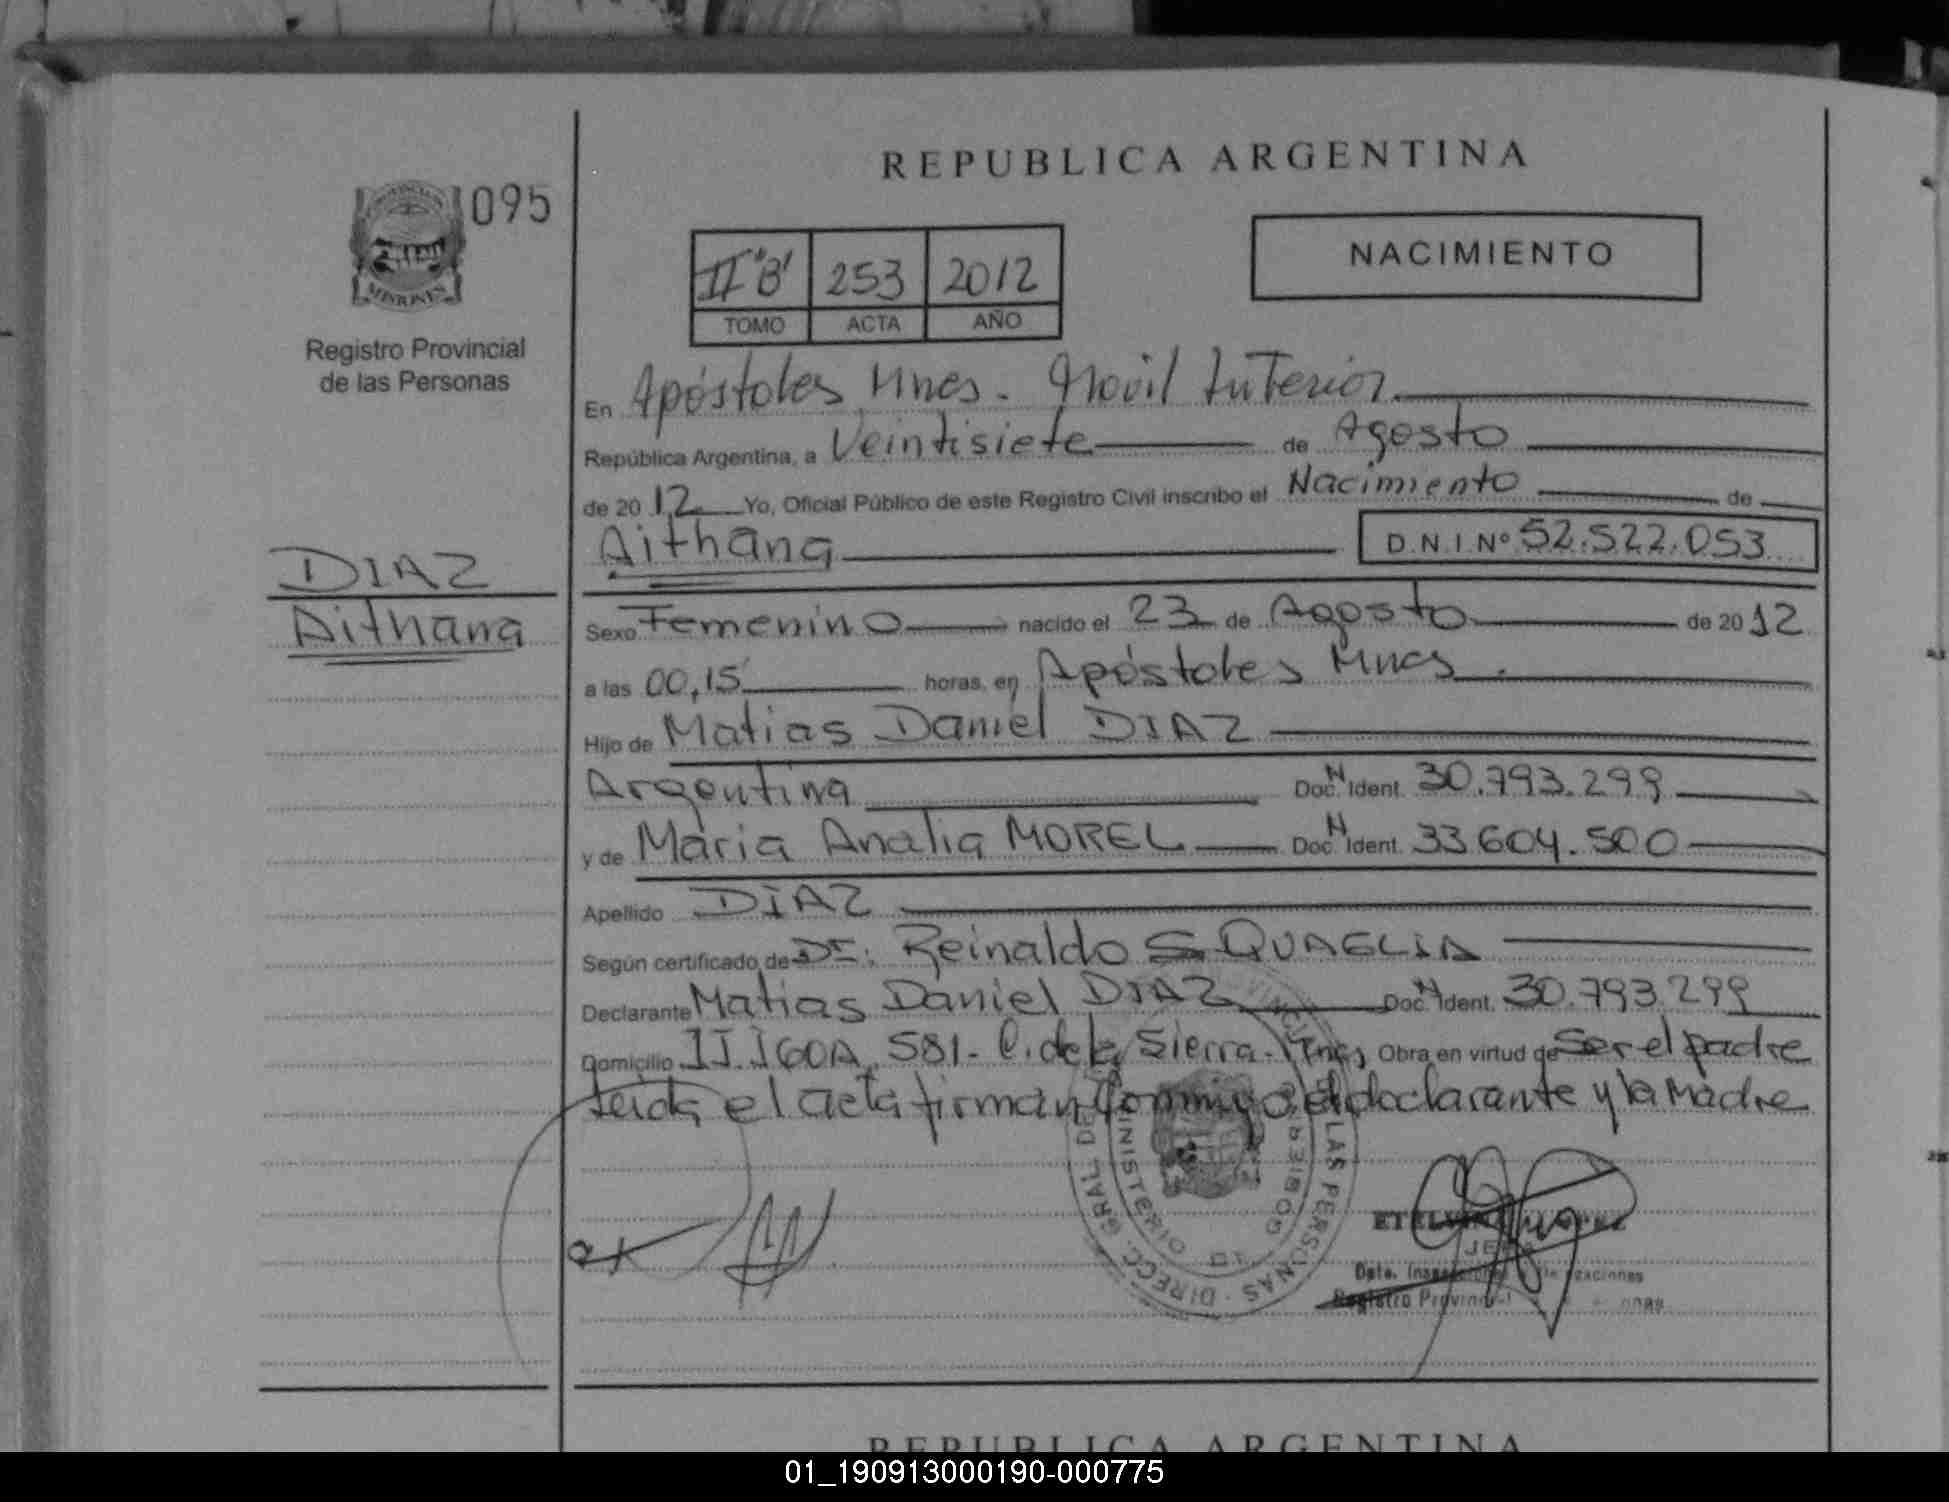 REPUBLICA ARGENTINA
095
MISIONES
Registro Provincial
de las Personas
NACIMIENTO
II "B" 253 2012
TOMO ACTA AÑO
En Apóstoles Mnes. Movil Interior
República Argentina, a Veintisiete de Agosto
de 2012 Yo, Oficial Público de este Registro Civil inscribo el Nacimiento de
Aithana D.N.I. Nº 52.522.053
DIAZ
Aithana
Sexo Femenino nacido el 23 de Agosto de 2012
a las 00,15 horas, en Apóstoles Mnes.
Hijo de Matias Daniel DIAZ
Argentina Doc. N Ident. 30.793.299
y de Maria Analia MOREL Doc. N Ident. 33.604.500
Apellido DIAZ
Según certificado de Dr: Reinaldo SQUAGLIA
Declarante Matias Daniel DIAZ Doc. N Ident. 30.793.299
Domicilio 581- C. de la Sierra. Mnes Obra en virtud de Ser el padre
Leida el acta firman Conmigo el declarante y la Madre
DIRECC. GRAL. DE LAS PERSONAS
JEFE
Registro
REPUBLICA ARGENTINA
01_190913000190-000775